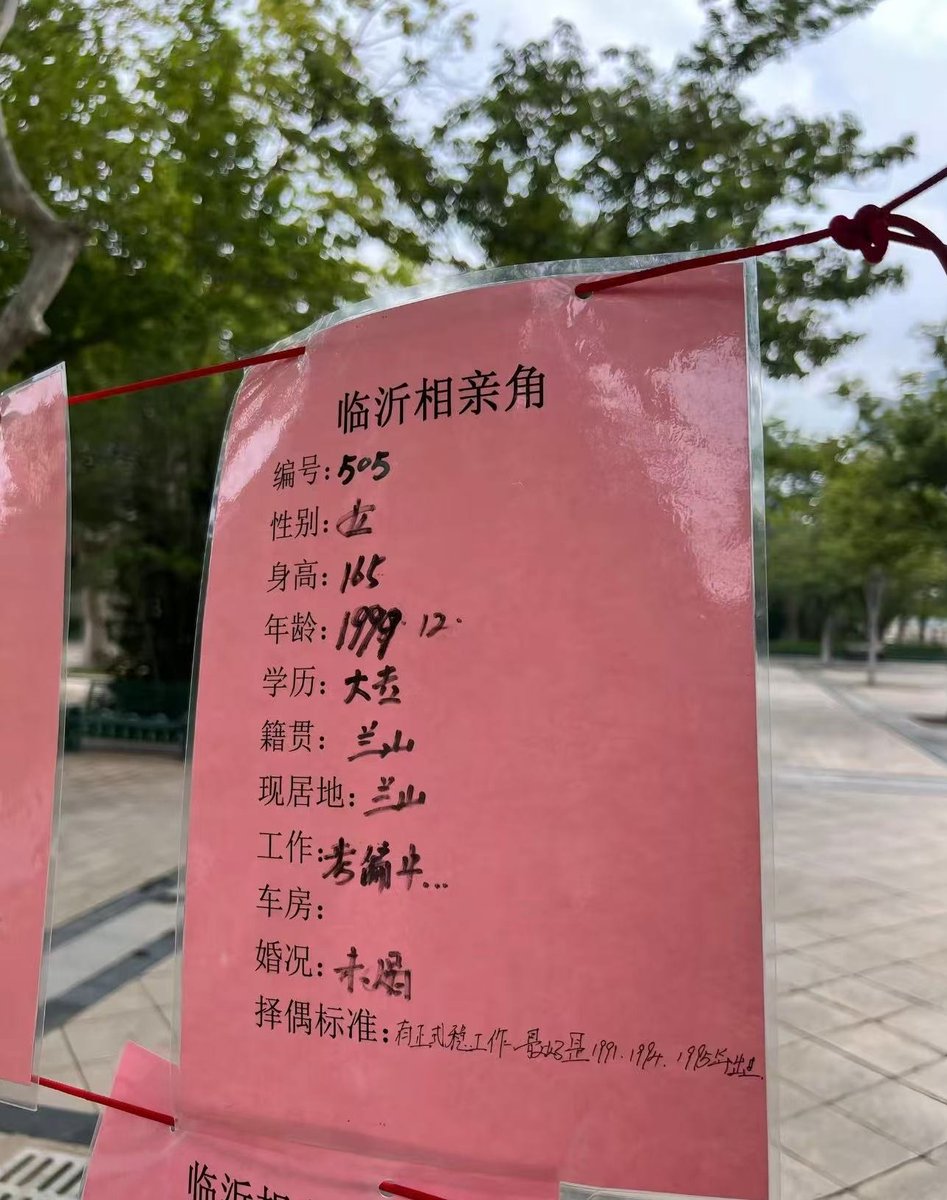 临沂相亲角
编号:505
性别:女
身高:165
年龄:1999.12.
学历:大专
籍贯:兰山
现居地:兰山
工作:考编中...
车房:
婚况:未婚
择偶标准:有正式稳工作 最好是1991、1994、1995年出生.
临沂相